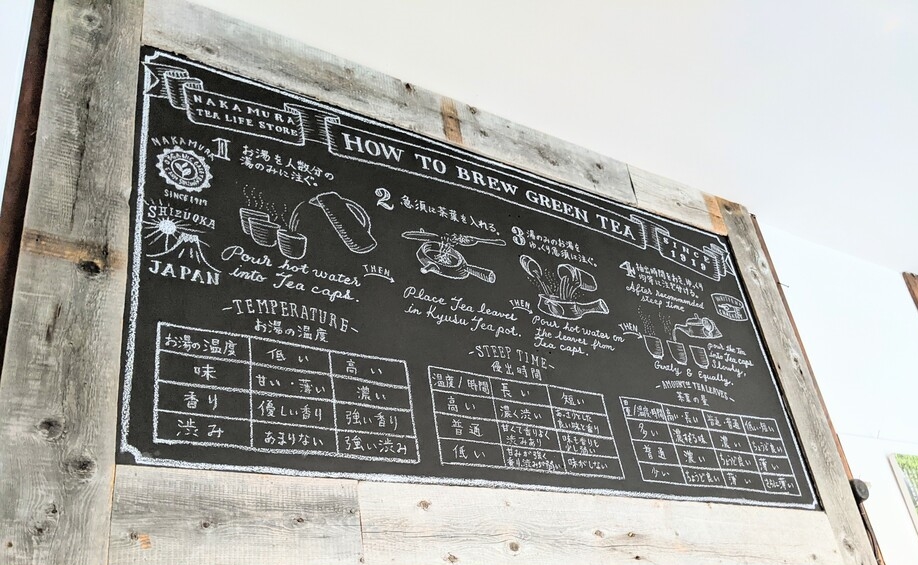 NAKAMURA
TEA LIFE STORE
HOW TO BREW GREEN TEA
SINCE
1919
NAKAMURA
SINCE 1919
SHIZUOKA
JAPAN
1
お湯を人数分の
湯のみに注ぐ。
Pour hot water
into Tea caps.
THEN,
2
急須に茶葉を入れる。
Place Tea leaves
in Kyusu Tea pot.
THEN,
3
湯のみのお湯を
ゆっくり急須に注ぐ。
Pour hot water on
the leaves from
Tea caps.
THEN,
4
抽出時間をおき、ゆっくり
均等に注ぎ分ける。
After recommended
steep time
pour the Tea
into Tea caps
Slowly,
& Equally.
-TEMPERATURE-
お湯の温度
お湯の温度 低い 高い
味 甘い・薄い 濃い
香り 優しい香り 強い香り
渋み あまりない 強い渋み
-STEEP TIME-
優出時間
温度/時間 長い 短い
高い 濃渋い あっさりした 良い味と香り
普通 甘くて香りよく 渋みあり 味も香りも 少し弱い
低い 甘みが強く 香り渋みが弱い 味がしない
-AMOUNT OF TEA LEAVES-
茶葉の量
量/温度・時間 高い・長い 普通・普通 低い・短い
多い 濃すぎる味 濃い ちょうど良い
普通 濃い ちょうど良い 薄い
少い ちょうど良い 薄い さらに薄い